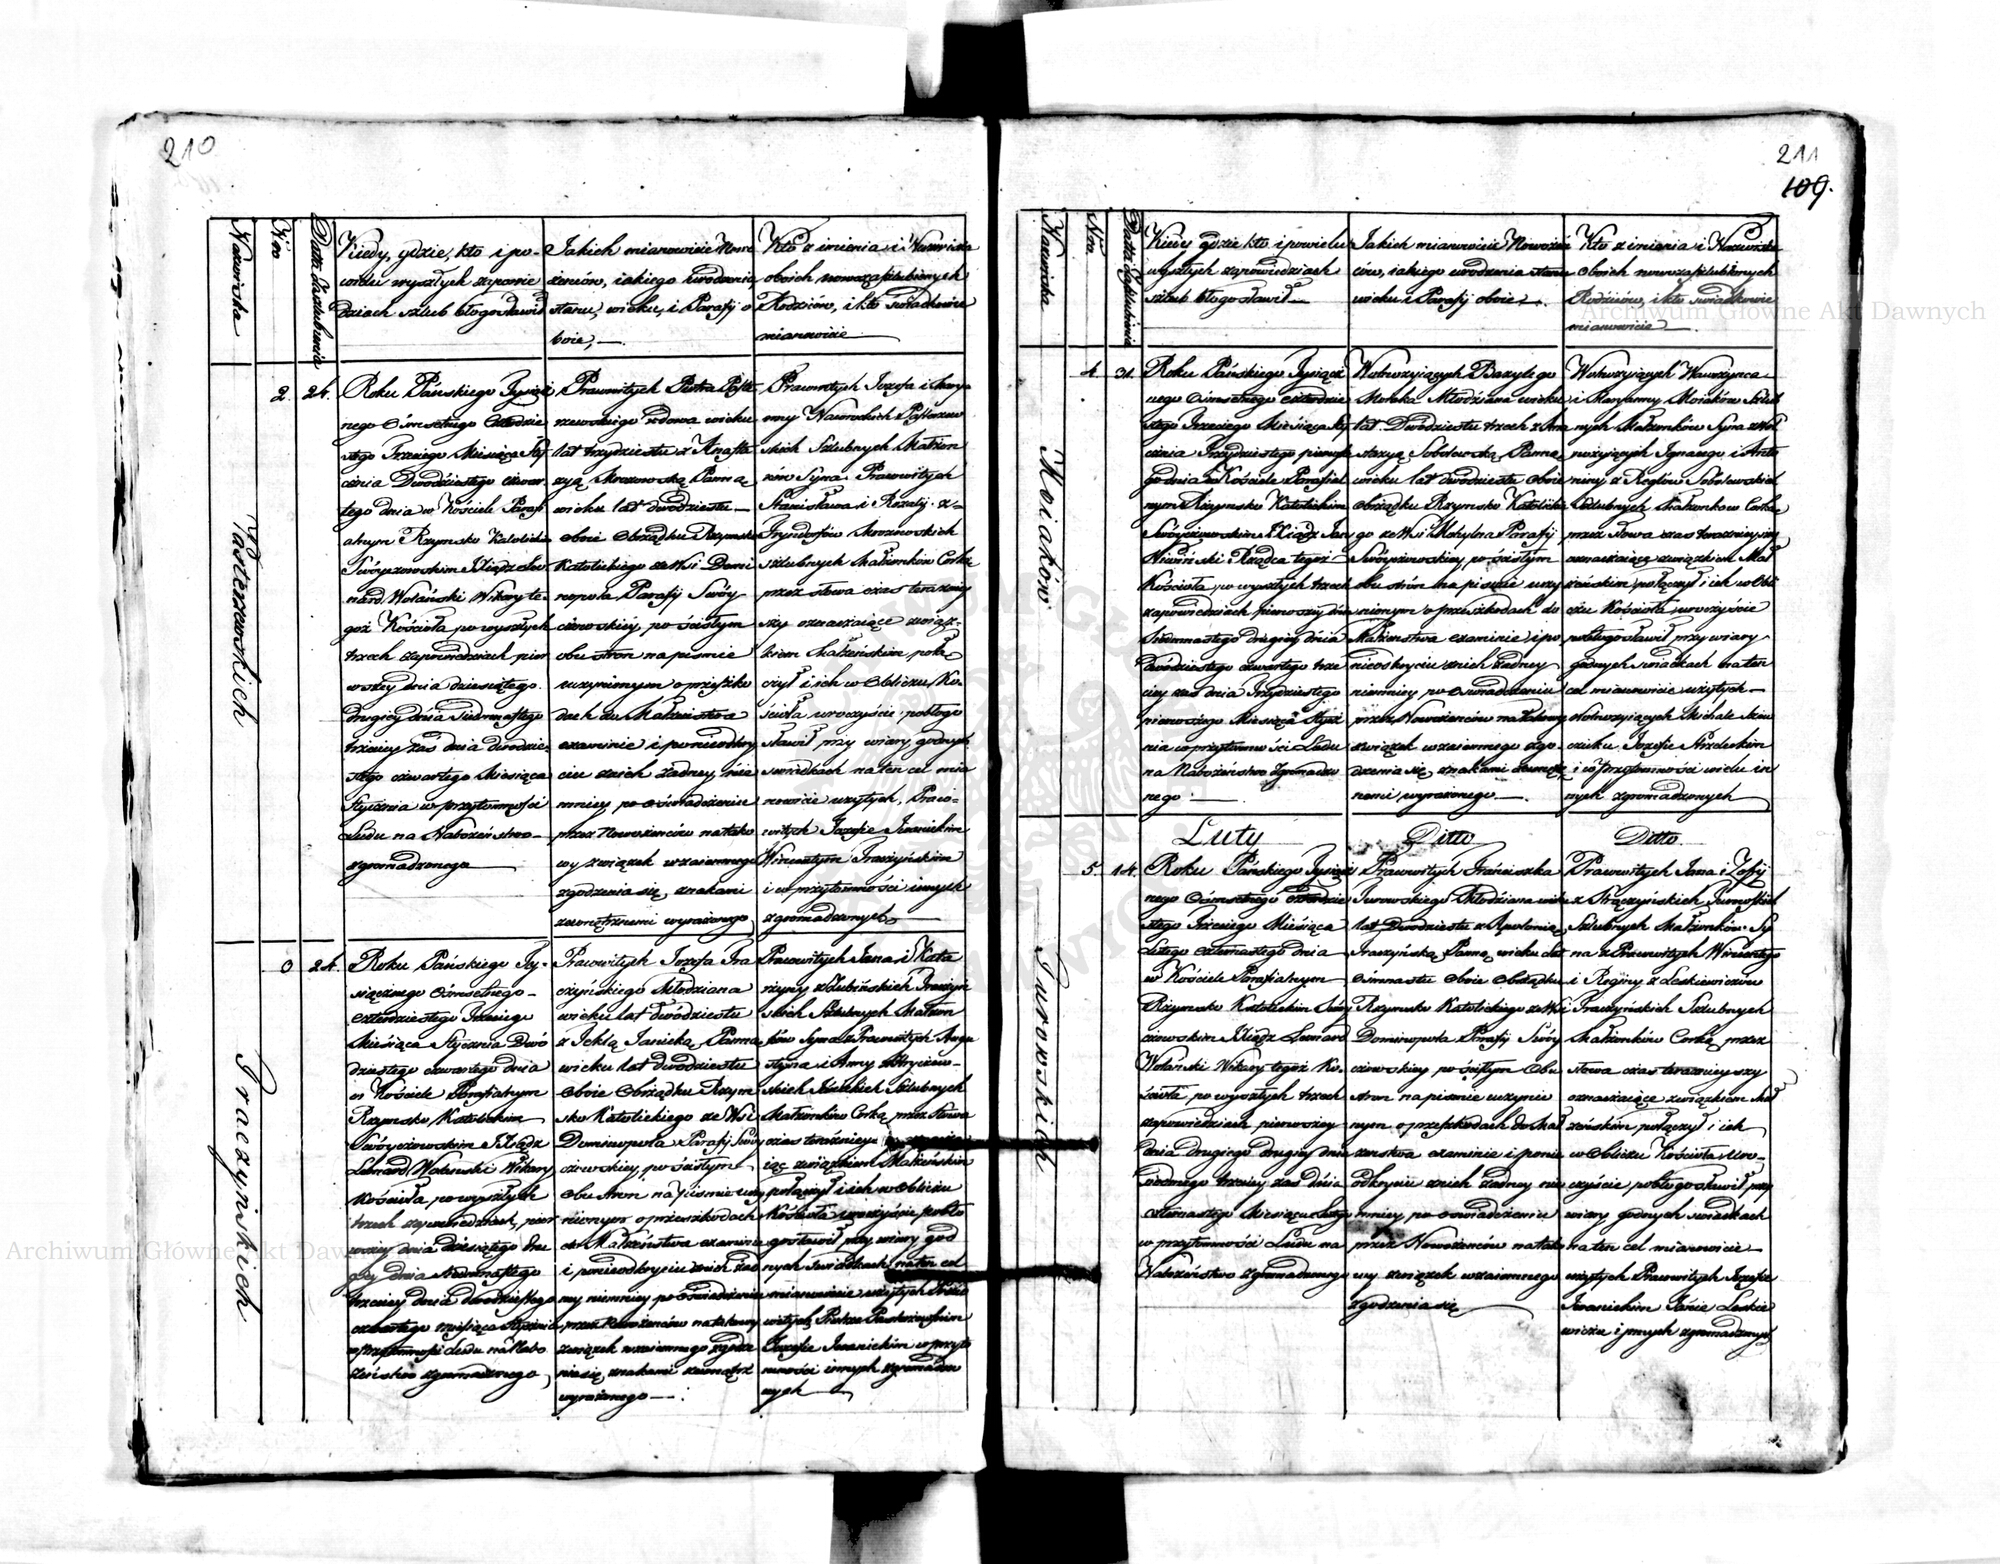 210
Nazwiska
Nro
Data Zaślubienia
Kiedy, gdzie, kto i po-
wielu wyszłych zapowie
dziach szlub błogosławił
Jakich mianowicie Nowo
żeńców, iakiego urodzenia
stanu, wieku, i Parafij o
boie,
Kto z imienia i Nazwiska
oboich nowozaślubionych
Rodziców, i kto świadkowie
mianowicie
Pasterzewskich
2. 24.
Roku Pańskiego Tysiącz
nego Ośmsetnego Czterdzie
stego Trzeciego Miesiąca Sty
cznia Dwódziestego czwar
tego dnia w Kościele Parafi
alnym Rzymsko Katolickim
Swóyczowskim Xiądz Leo
nard Wolański Wikary te-
goż Kościoła po wyszłych
trzech zapowiedziach pier
wszey dnia dziesiątego
drugiey dnia siedmnastego
trzeciey zaś dnia dwódzie-
stego czwartego Miesiąca
Stycznia w przytomności
Ludu na Nabożeństwo
zgromadzonego
Pracowitych Piotra Paste
rzewskiego wdowa wieku
lat trzydziestu z Anasta
zyą Mrozowską Panną
wieku lat dwodziestu
oboie Obrządku Rzymsko
Katolickiego ze Wsi Domi
nopola Parafij Swóy
czowskiey, po ścisłym
obu stron na pismie
uczynionym o przeszko
dach do Małżeństwa
examinie i po nieodkry
ciu z nich żadney, nie
mniey po oświadczeniu
przez Nowożeńców na tako
wy związek wzaiemnego
zgodzenia się, znakami
zewnętrznemi wyrażonego
Pracowitych Jozefa i Mary
anny Nawrockich Pasterzew
skich Szlubnych Małżon
ków Syna Pracowitych
Stanisława i Rozalij z
Mrozowskich
szlubnych Małżonków Corkę
przez słowa czas teraźniey
szy oznaczaiące związ-
kiem Małżeńskim, połą-
czył i ich w Obliczu Ko-
ścioła uroczyście pobłogo
sławił przy wiary godnych
świadkach na ten cel mia
nowicie użytych, Praco-
witych Jozefie Iwanickim
Wincentym Traczyńskim
i w przytomności innych
zgromadzonych
Traczyńskich
24.
Roku Pańskiego Ty-
siącznego Ośmsetnego
Czterdziestego Trzeciego
Miesiąca Stycznia Dwó
dziestego czwartego dnia
w Kościele Parafialnym
Rzymsko Katolickim
Swóyczowskim Xiądz
Leonard Wolański Wikary
Kościoła po wyszłych
trzech zapowiedziach, pier
wszey dnia dziesiątego dru
giey dnia siedmnastego
trzeciey dnia dwodziestego
czwartego miesiąca Stycznia
w przytomności Ludu na Nabo
żeństwo zgromadzonego
Pracowitych Jozefa Tra
czyńskiego Młodziana
wieku lat dwodziestu
z Teklą Janicką Panną
wieku lat dwodziestu
oboie Obrządku Rzym
sko Katolickiego ze Wsi
Dominopola Parafij Swóy
czowskiey, po ścisłym
obu stron na pismie uczy
nionym o przeszkodach
do Małżeństwa examinie
i po nieodkryciu z nich żad
ney niemniey po oświadczeniu
przez Nowożeńców na takowy
związek wzaiemnego zgodze
nia się, znakami zewnątrz
wyrażonego
Pracowitych Jana i Kata
rzyny z Traczyń
skich Szlubnych Małżon
ków Syna z Pracowitych Augu
styna i Anny
Janickich Szlubnych
Małżonków Corką, przez słowa
czas teraźnieyszy
związkiem Małżeńskim
połączył i ich w Obliczu
Kościoła uroczyście pobło
gosławił przy wiary god
nych świadkach na ten cel
mianowicie użytych Praco
witych Piotrze Pasterzewskim
Jozefie Iwanickim w przyto
mności innych zgromadzo
nych
211
109.
Nazwiska
Nro
Data Zaślubienia
Kiedy gdzie kto i powielu
wyszłych zapowiedziach
szlub błogosławił
Jakich mianowicie Nowożeń
ców, iakiego urodzenia stanu
wieku i Parafij oboie
Kto z imienia i Nazwiska
oboich nowozaślubionych
Rodziców, i kto świadkowie
mianowicie
Moiaków
4. 31.
Roku Pańskiego Tysiącz
nego Ośmsetnego czterdzie
stego Trzeciego Miesiąca Sty
cznia Trzydziestego pierwsze
go dnia w Kościele Parafial
nym Rzymsko Katolickim
Swóyczowskim Xiądz Jan
Niwiński Rządca tegoż
Kościoła, po wyszłych trzech
zapowiedziach pierwszey dnia
siedmnastego drugiey dnia
dwódziestego czwartego trze
ciey zaś dnia trzydziestego
pierwszego Miesiąca Stycz
nia w przytomności Ludu
na Nabożeństwo zgromadzo
nego
Wolnożyiących Bazylego
Moiaka Młodziana wieku
lat Dwodziestu trzech z Ana
stazyą Sobolewską Panną
wieku lat dwodziestu oboie
obrządku Rzymsko Katolickie
go ze Wsi Mohylna Parafij
Swóyczowskiey, po ścisłym
obu stron na pismie uczy
nionym o przeszkodach do
Małżenstwa examinie i po
nieodkryciu z nich żadney
niemniey po oświadczeniu
przez Nowożeńców na takowy
związek wzaiemnego zgo
dzenia się, znakami zewnętrz
nemi wyrażonego
Wolnożyiących Wawrzyńca
i Maryanny Moiaków Szlub
nych Małżonków Syna z Wol
nożyiących Ignacego i Anto
niny z Sobolewskich
Szlubnych Małżonków Corką
przez słowa czas teraznieyszy
oznaczaiące związkiem Mał
żeńskim, połączył i ich w Obli
czu Kościoła, uroczyście
pobłogosławił przy wiary
godnych świadkach na ten
cel mianowicie użytych
Wolnożyiących Michale
Jozefie Strzeleckim
i w przytomności wielu in
nych zgromadzonych
Luty
Ditto
Ditto
Turowskich
5. 14.
Roku Pańskiego Tysiącz
nego Ośmsetnego czterdzie
stego Trzeciego Miesiąca
Lutego czternastego dnia
w Kościele Parafialnym
Rzymsko Katolickim Swóy
czowskim Xiądz Leonard
Wolański Wikary tegoż Ko
ścioła, po wyszłych trzech
zapowiedziach pierwszey
dnia drugiego drugiey dnia
siódmego trzeciey zaś dnia
czternastego Miesiąca Lutego
w przytomności Ludu na
Nabożeństwo zgromadzonego
Pracowitych Franciszka
Turowskiego Młodziana wieku
lat Dwodziestu z Apolonią
Traczyńską Panną wieku lat
ośmnastu Oboie Obrządku
Rzymsko Katolickiego ze Wsi
Dominopola Parafij Swóy
czowskiey po ścisłym Obu
stron na pismie uczynio
nym o przeszkodach do Mał
żenstwa examinie i ponie
odkryciu z nich żadney nie
mniey po oświadczeniu
przez Nowożeńców na tako
wy związek wzaiemnego
zgodzenia się
Pracowitych Jana i Zofij
z Strączyńskich Turowskich
Szlubnych Małżonków Sy
na z Pracowitych Wincentego
i Reginy z Leskiewiczów
Traczyńskich Szlubnych
Małżonków Corką przez
słowa czas teraznieyszy
oznaczaiące związkiem Mał
żeńskim połączył i ich
w Obliczu Kościoła Uro-
czyście pobłogosławił przy
wiary godnych świadkach
na ten cel mianowicie
użytych Pracowitych Jozefie
Iwanickim Janie Leskie
wiczu i innych zgromadzonych
Archiwum Główne Akt Dawnych
Archiwum Główne Akt Dawnych